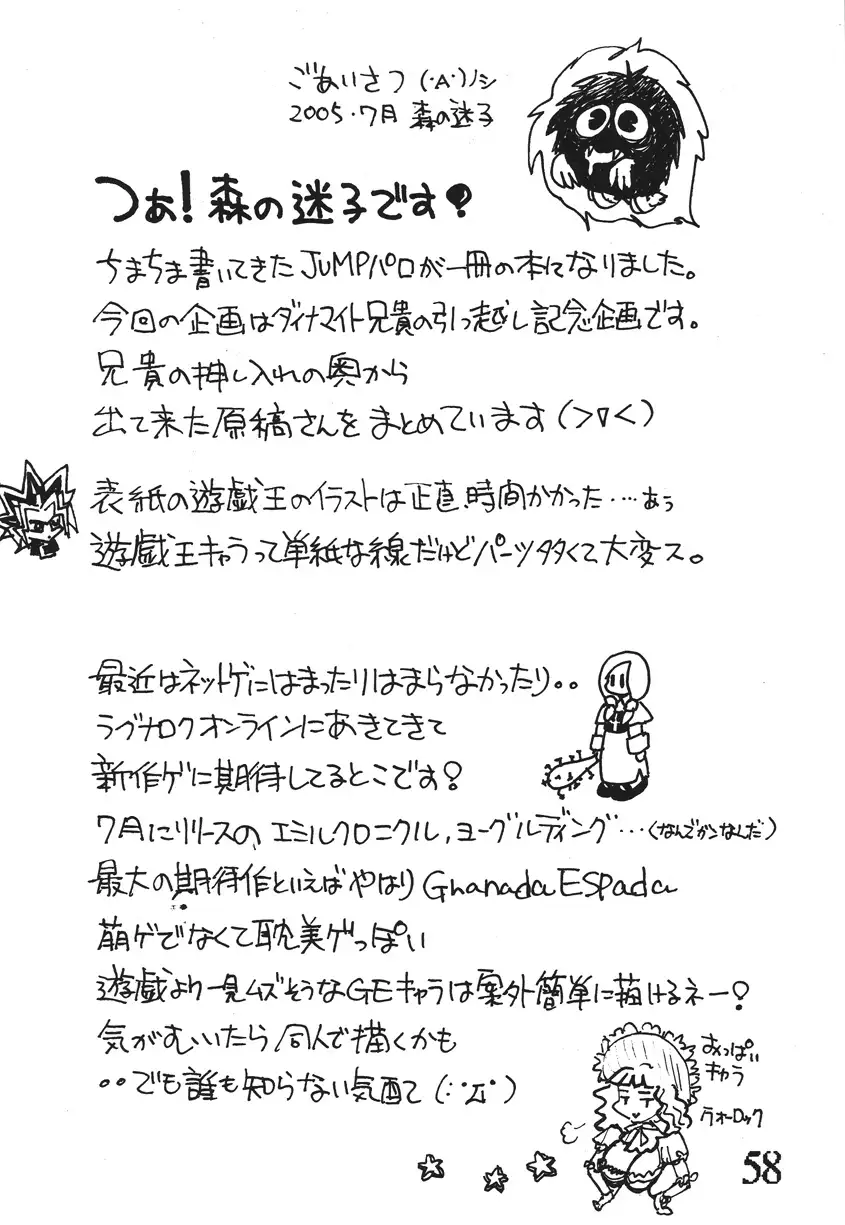 ごあいさつ (･A･)ノシ
2005・7月 森の迷子
つぁ!森の迷子です?
ちまちま書いてきたJUMPパロが一冊の本になりました。
今回の企画はダイナマイト兄貴の引っ越し記念企画です。
兄貴の押し入れの奥から
出て来た原稿さんをまとめています(>∇<)
表紙の遊戯王のイラストは正直、時間かかった‥‥ぁぅ
遊戯王キャラって単紙な線だけどパーツ多くて大変ス。
最近はネットゲにはまったりはまらなかったり。。
ラグナロクオンラインにあきてきて
新作ゲに期待してるとこです?
7月にリリースの、エミルクロニクル,ヨーグルディング…(なんでかンなんだ)
最大の期待作といえばやはりGnanada ESpada
萌ゲでなくて耽美ゲっぽい
遊戯より一見ムズそうなGEキャラは案外簡単に描けるネー?
気がむいたら同人で描くかも
・・でも誰も知らない気配て(;゚Д゚)
おっぱい
キャラ
ウォーロック
58